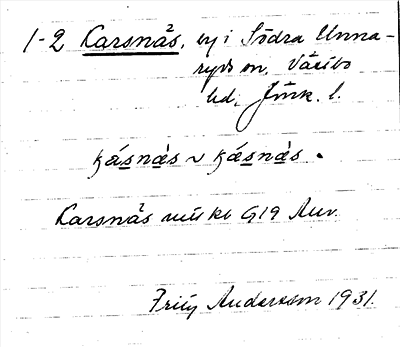 1-2 Karsnäs, by i Södra Unna-
ryds sn, Västbo
hd, Jönk. l.
kásnàs ~ kásnàs.
Karsnäs G19 Anv.
Andersson 1931.